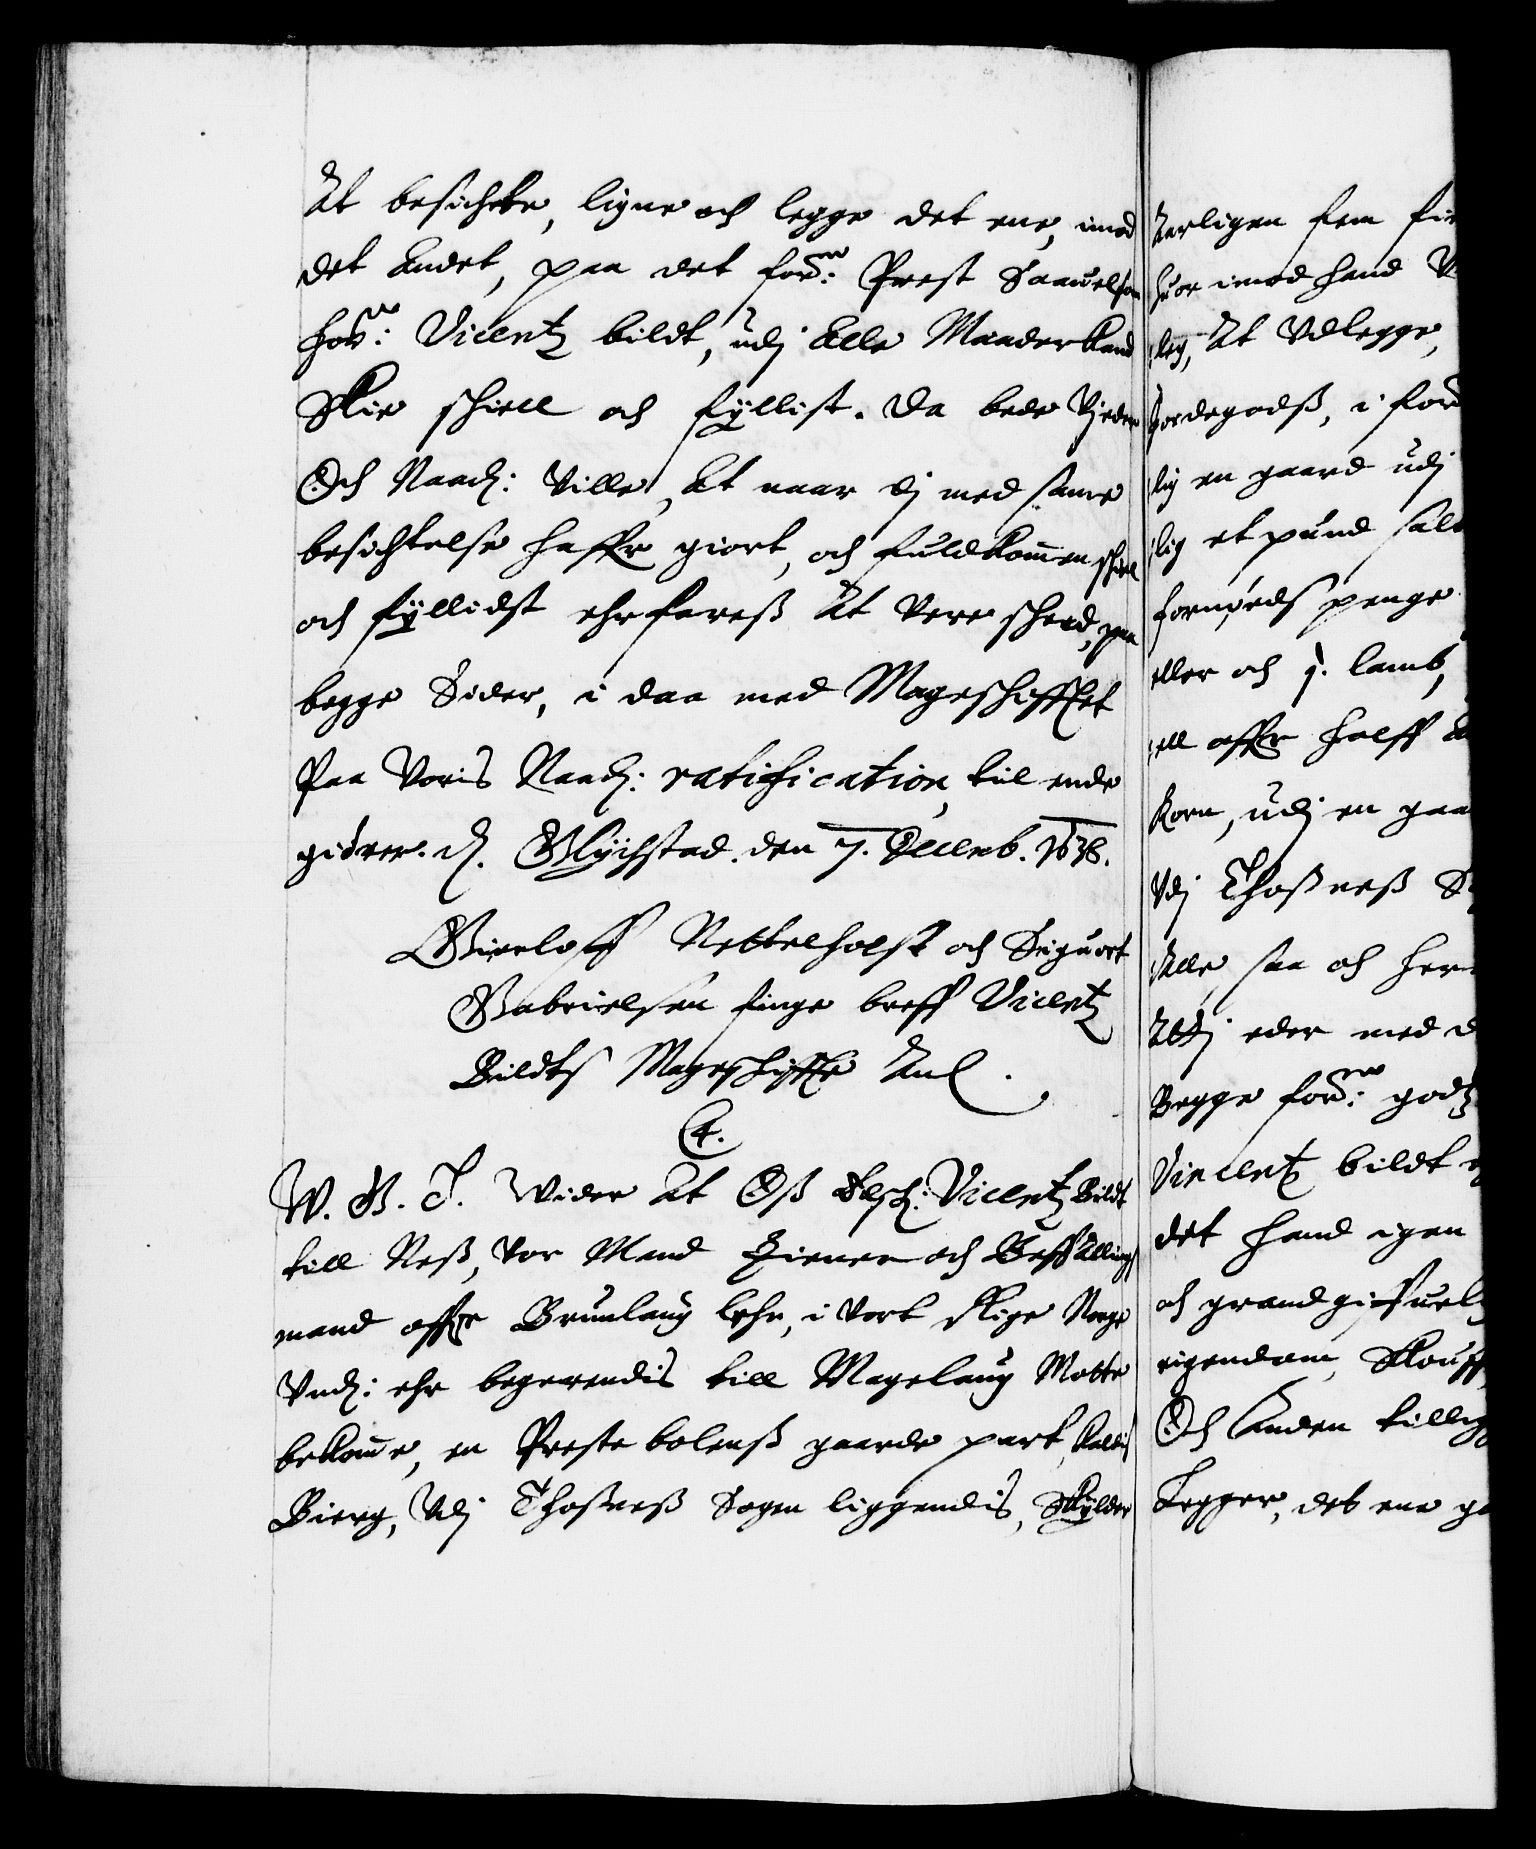 At besichte, ligne och legge det ene, imod
det Andet, paa det forne: Prest Saauelsom
forne: Vicentz bildt, udj Alle Maader kand
Skie schiell och fyllist. Da bede Vj eder
Och Naadh: Ville, At naar dj med same
besichtelse haffr giort, och fuldkommen schiell
och fyllidst ehrfareß At Vere scheed, paa
begge Sider, i daa med Mageschifftet
Paa Voris Naadh: ratification, til ende
giörer. d. Glychstad. den 7. Decemb. 1638.
Gierloff Nettelhorst och Siguort
Gabrielsen finge breff Vicentz
Bildts Mageschiffte Anl.
C 4.
W. G. T. Wider At Oß Elsch: Vicentz Bildt
till Neß, Vor Mand Tiener och Beffalling
mand offr Brunlaug lehn, i Vort Rige Norge
Vndh: ehr begerendis till Magelaug Motte
bekome, en Preste bolenß gaarde part, kaldis
Bierg, Udj Thoßneß Sogen liggendis, Skylder
Aarligen fem
huor imod hand
leg, At Udlegge,
Jordegodß, i
lig en gaard udj
lig et pund salt
fornødß penge
eller och 1. lamb,
ell offr halff
Korn, udj en
Vdj Thoßneß
Alle, saa och
At dj eder med
Begge forne: godtz
Vincentz bildt
det hand igen
och grandgifuel
eigendom, Skouff
Och Anden tillig
Legger, det ene